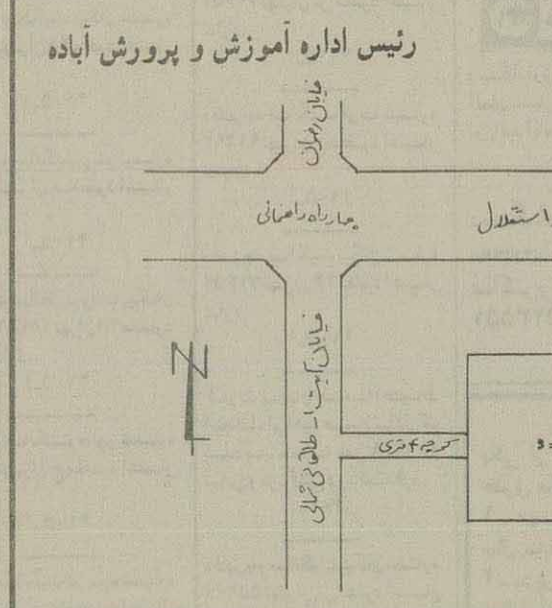 رئیس اداره آموزش و پرورش آباده
خیابان
چهارراه راهنمائی
استقلال
خیابان آیت ا... طالقانی شمالی
کوچه ۴ متری
N